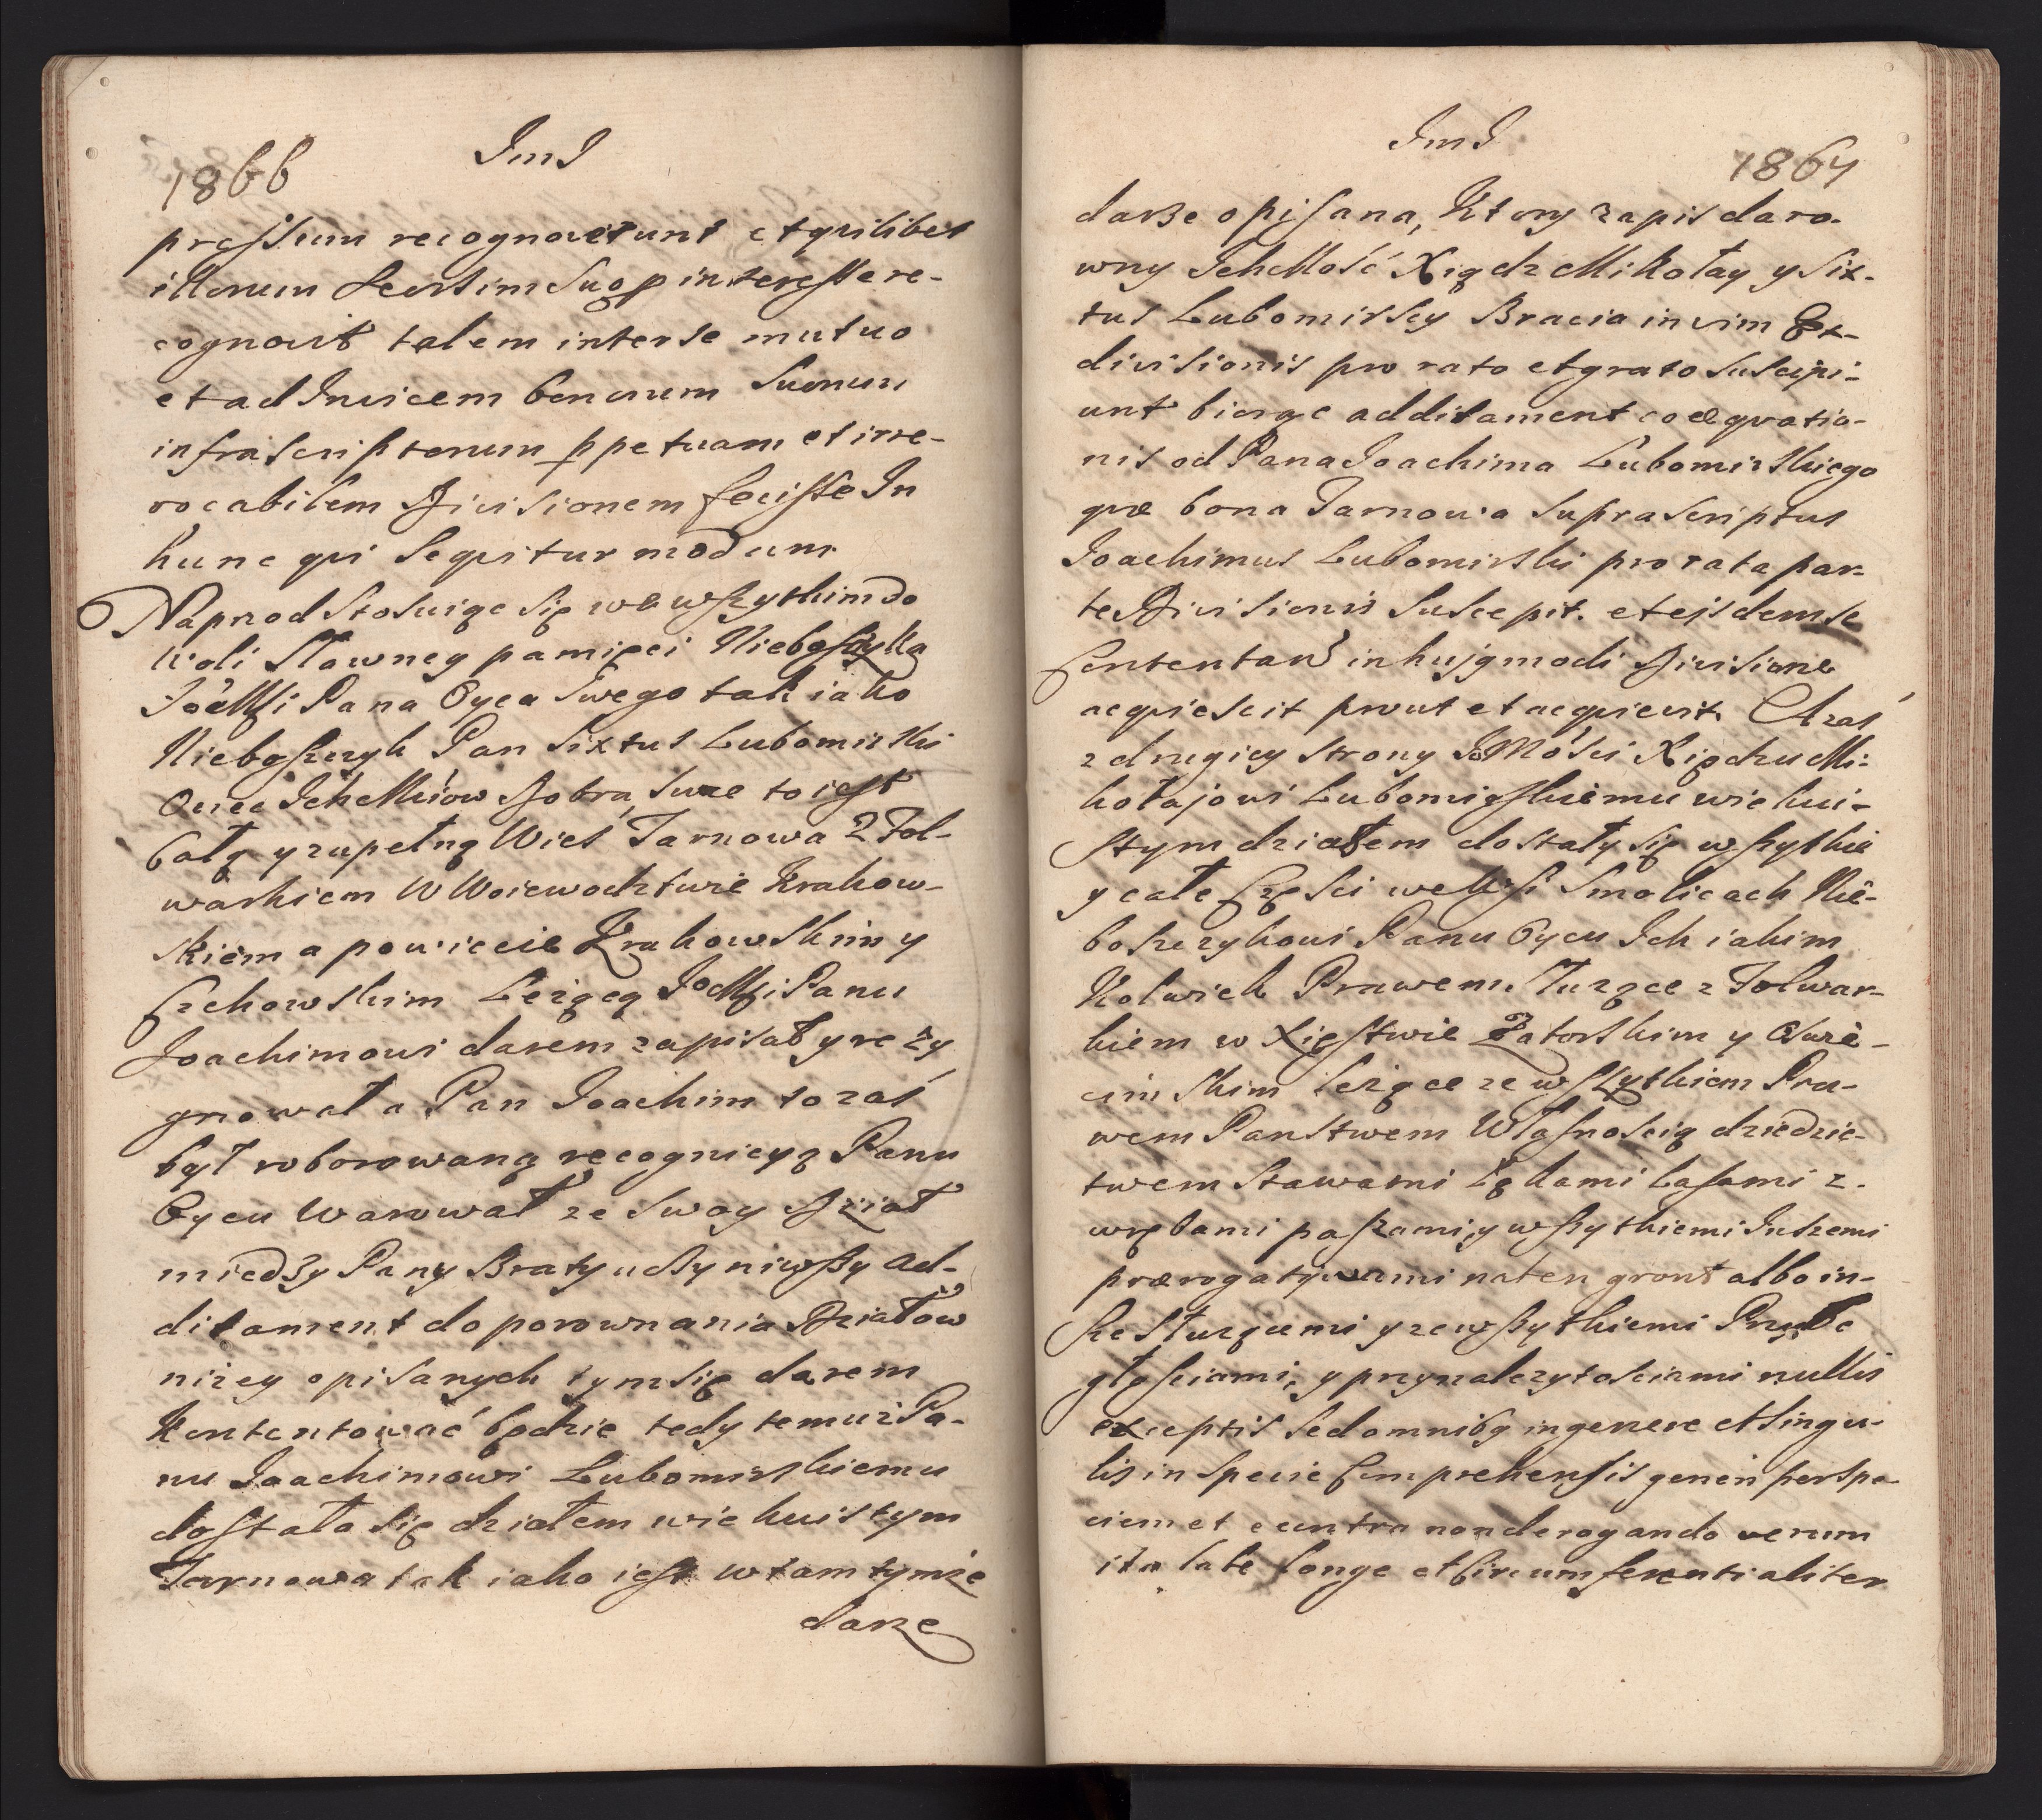 1866
JmJ
pressum recognoverunt et quilibet
illorum seorsim suo interesse re-
cognovit talem inter se mutuo
et ad Invicem bonorum Suorum
infrascriptorum ppetuam et irre-
vocabilem Divisionem fecisse In
hunc qui Sequitur modum.
Naprzod Stosuiąc się we wszythim do
woli Sławney pamięci Niebosczyka
JoeMsći Pana Oyca Swego tak iako
Niebosczyk Pan Sixtus Lubomirski
Ociec Ich Mściow Dobra Swe to iest
Całą y zupełną Wies Tarnowa z Fol-
warkiem W Woiewodztwie Krakow-
skiem a powiecie Krakowskim y
Czchowskim Leżącą JoeMści Panu
Joachimowi darem zapisał y rezy
gnował a Pan Joachim to zaś
był roborowaną recognicyą Panu
Oycu Warował ze Swoy Dział
miedzy Pany Braty uczyniwszy ad-
ditament do porownania Działow
niżey opisanych tym się darem
Kontentować będzie tedy temuż Pa-
nu Joachimowi Lubomirskiemu
dostała się działem wiekuistym
Tarnowa tak iako iest w tamtymże
darze
JmJ
1867
darze opisana, Ktory zapis daro-
wny IchMość Xiądz Mikołay y Six-
tus Lubomirscy Bracia in vim Ex-
divisionis pro rato et grato suscipi-
unt biorąc additament coæquatio-
nis od Pana Joachima Lubomirskiego
quæ bona Tarnowa supra scriptus
Joachimus Lubomirski pro rata par-
te Divisionis suscepit. et eisdem se
Contentans in hujqmodi Divisione
acquiescit prout et acquievit. A zaś
z drugiey strony JoMości Xiędzu Mi-
kołajowi Lubomirskiemu wiekui-
stym działem dostały się wszytkie
y całe Części we Wsi Smolicach Nie-
boszczykowi Panu Oycu Ich iakim
Kolwiek Prawem Służące z Folwar-
kiem w Xięstwie Zatorskim y Oswie-
cimskim leżące ze wszytkiem Pra-
wem Panstwem Własnością dziedzic-
twem Stawami Łąkami Lasami z
wrębami paszami, y wszytkiemi Inszemi
prærogatywami na ten gront albo in-
sze służącemi y ze wszytkiemi Przyle
głościami, y przynależytościami nullis
exceptis sed omnibq in genere et singu-
lis in Specie Comprehensis generi per spe
ciem et e contra non derogando verum
ita late longe et Circumferentialiter